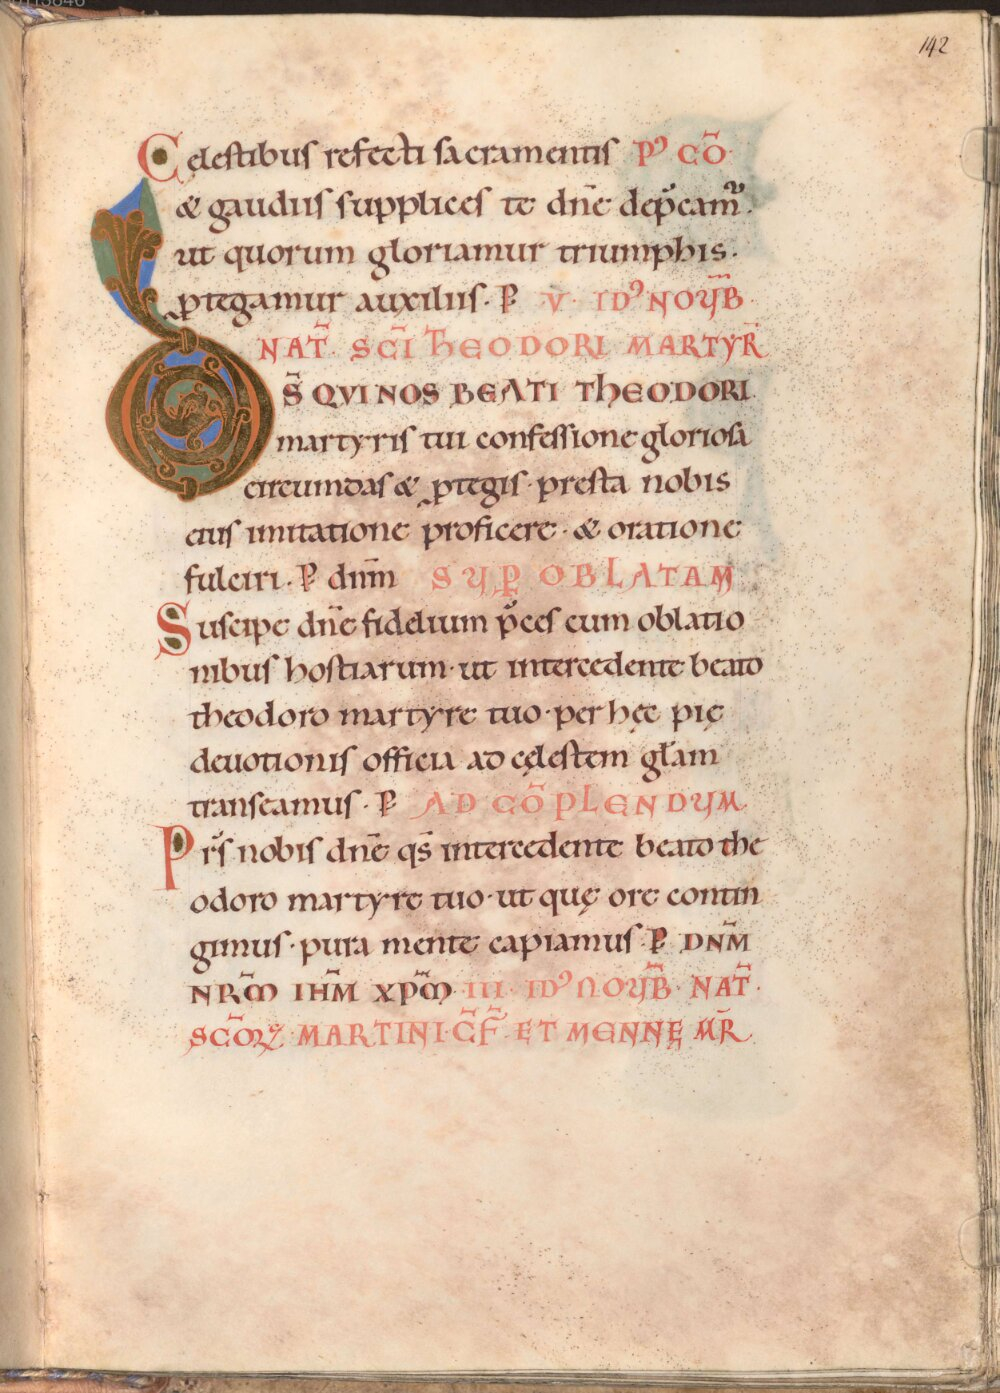 142
Celestibus refecti sacramentis P' CŌ
& gaudiis supplices te dñe dep̃camur̃.
ut quorum gloriamur triumphis.
ꝓtegamur auxiliis. P̱ V. ID' NOVB̃
NAT̃. SC̃I THEODORI MARTYR̃
DS̃ QVI NOS BEATI THEODORI
martyris tui confessione gloriosa
circumdas & ꝓtegis. presta nobis
eius imitatione proficere. & oratione
fulciri. P̱ dñm SUꝐ OBLATAM
Suscipe dñe fidelium p̃ces cum oblatio
nibus hostiarum. ut intercedente beato
theodoro martyre tuo. per hęc pię
deuotionis officia ad cęlestem gl̃am
transeamus. P̱ AD CŌPLENDUM
Pr̃s nobis dñe qs̃ intercedente beato the
odoro martyre tuo. ut quę ore contin
gimus. pura mente capiamus. P̱ DÑM
NRM̃ IHM̃ XPM̃. III. ID' NOVB̃. NAT̃.
SCŌꝜ MARTINI C̃F̃. ET MENNĘ M̃R